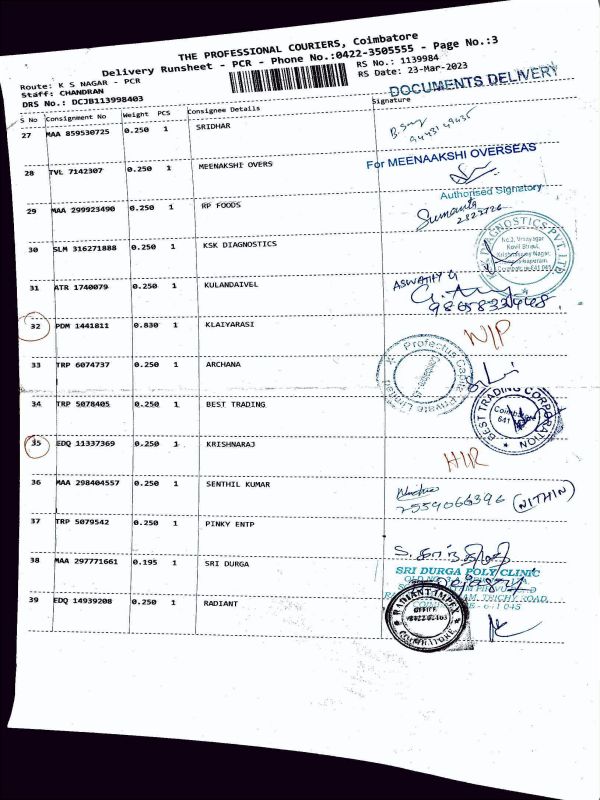 THE PROFESSIONAL COURIERS, Coimbatore
Delivery Runsheet - PCR - Phone No.:0422-3505555 - Page No.:3
Route: K S NAGAR - PCR
RS No.: 1139984
Staff: CHANDRAN
RS Date: 23-Mar-2023
DRS No.: DCJB113998403
DOCUMENTS DELIVERY
S No Consignment No Weight PCS Consignee Details Signature
27 MAA 859530725 0.250 1 SRIDHAR
28 TVL 7142307 0.250 1 MEENAKSHI OVERS
For MEENAAKSHI OVERSEAS
Authorised Signatory
29 MAA 299923490 0.250 1 RP FOODS
Sumanta
30 SLM 316271888 0.250 1 KSK DIAGNOSTICS
No.2, Vinayagar
Kovil Street,
Krishnasamy Nagar,
31 ATR 1740079 0.250 1 KULANDAIVEL
ASWATHY G
32 PDM 1441811 0.830 1 KLAIYARASI
N/P
33 TRP 6074737 0.250 1 ARCHANA
Profectus Capital Private Limited
34 TRP 5078405 0.250 1 BEST TRADING
BEST TRADING CORPORATION
Coimbatore
641
35 EDQ 11337369 0.250 1 KRISHNARAJ
H/R
36 MAA 298404557 0.250 1 SENTHIL KUMAR
2559066396 (NITHIN)
37 TRP 5079542 0.250 1 PINKY ENTP
38 MAA 297771661 0.195 1 SRI DURGA
SRI DURGA POLY CLINIC
TRICHY ROAD,
641 045
39 EDQ 14939208 0.250 1 RADIANT
RADIANT IMPEX
OFFICE
COIMBATORE